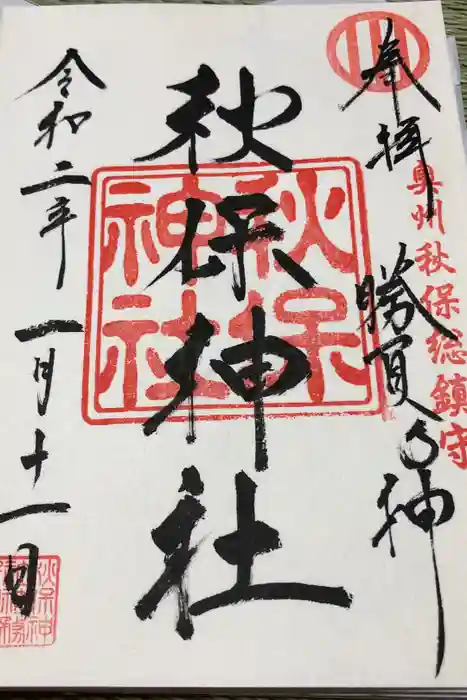 奉拝
勝負の神
奥州秋保総鎮守
秋保神社
秋保神社
令和二年一月十一日